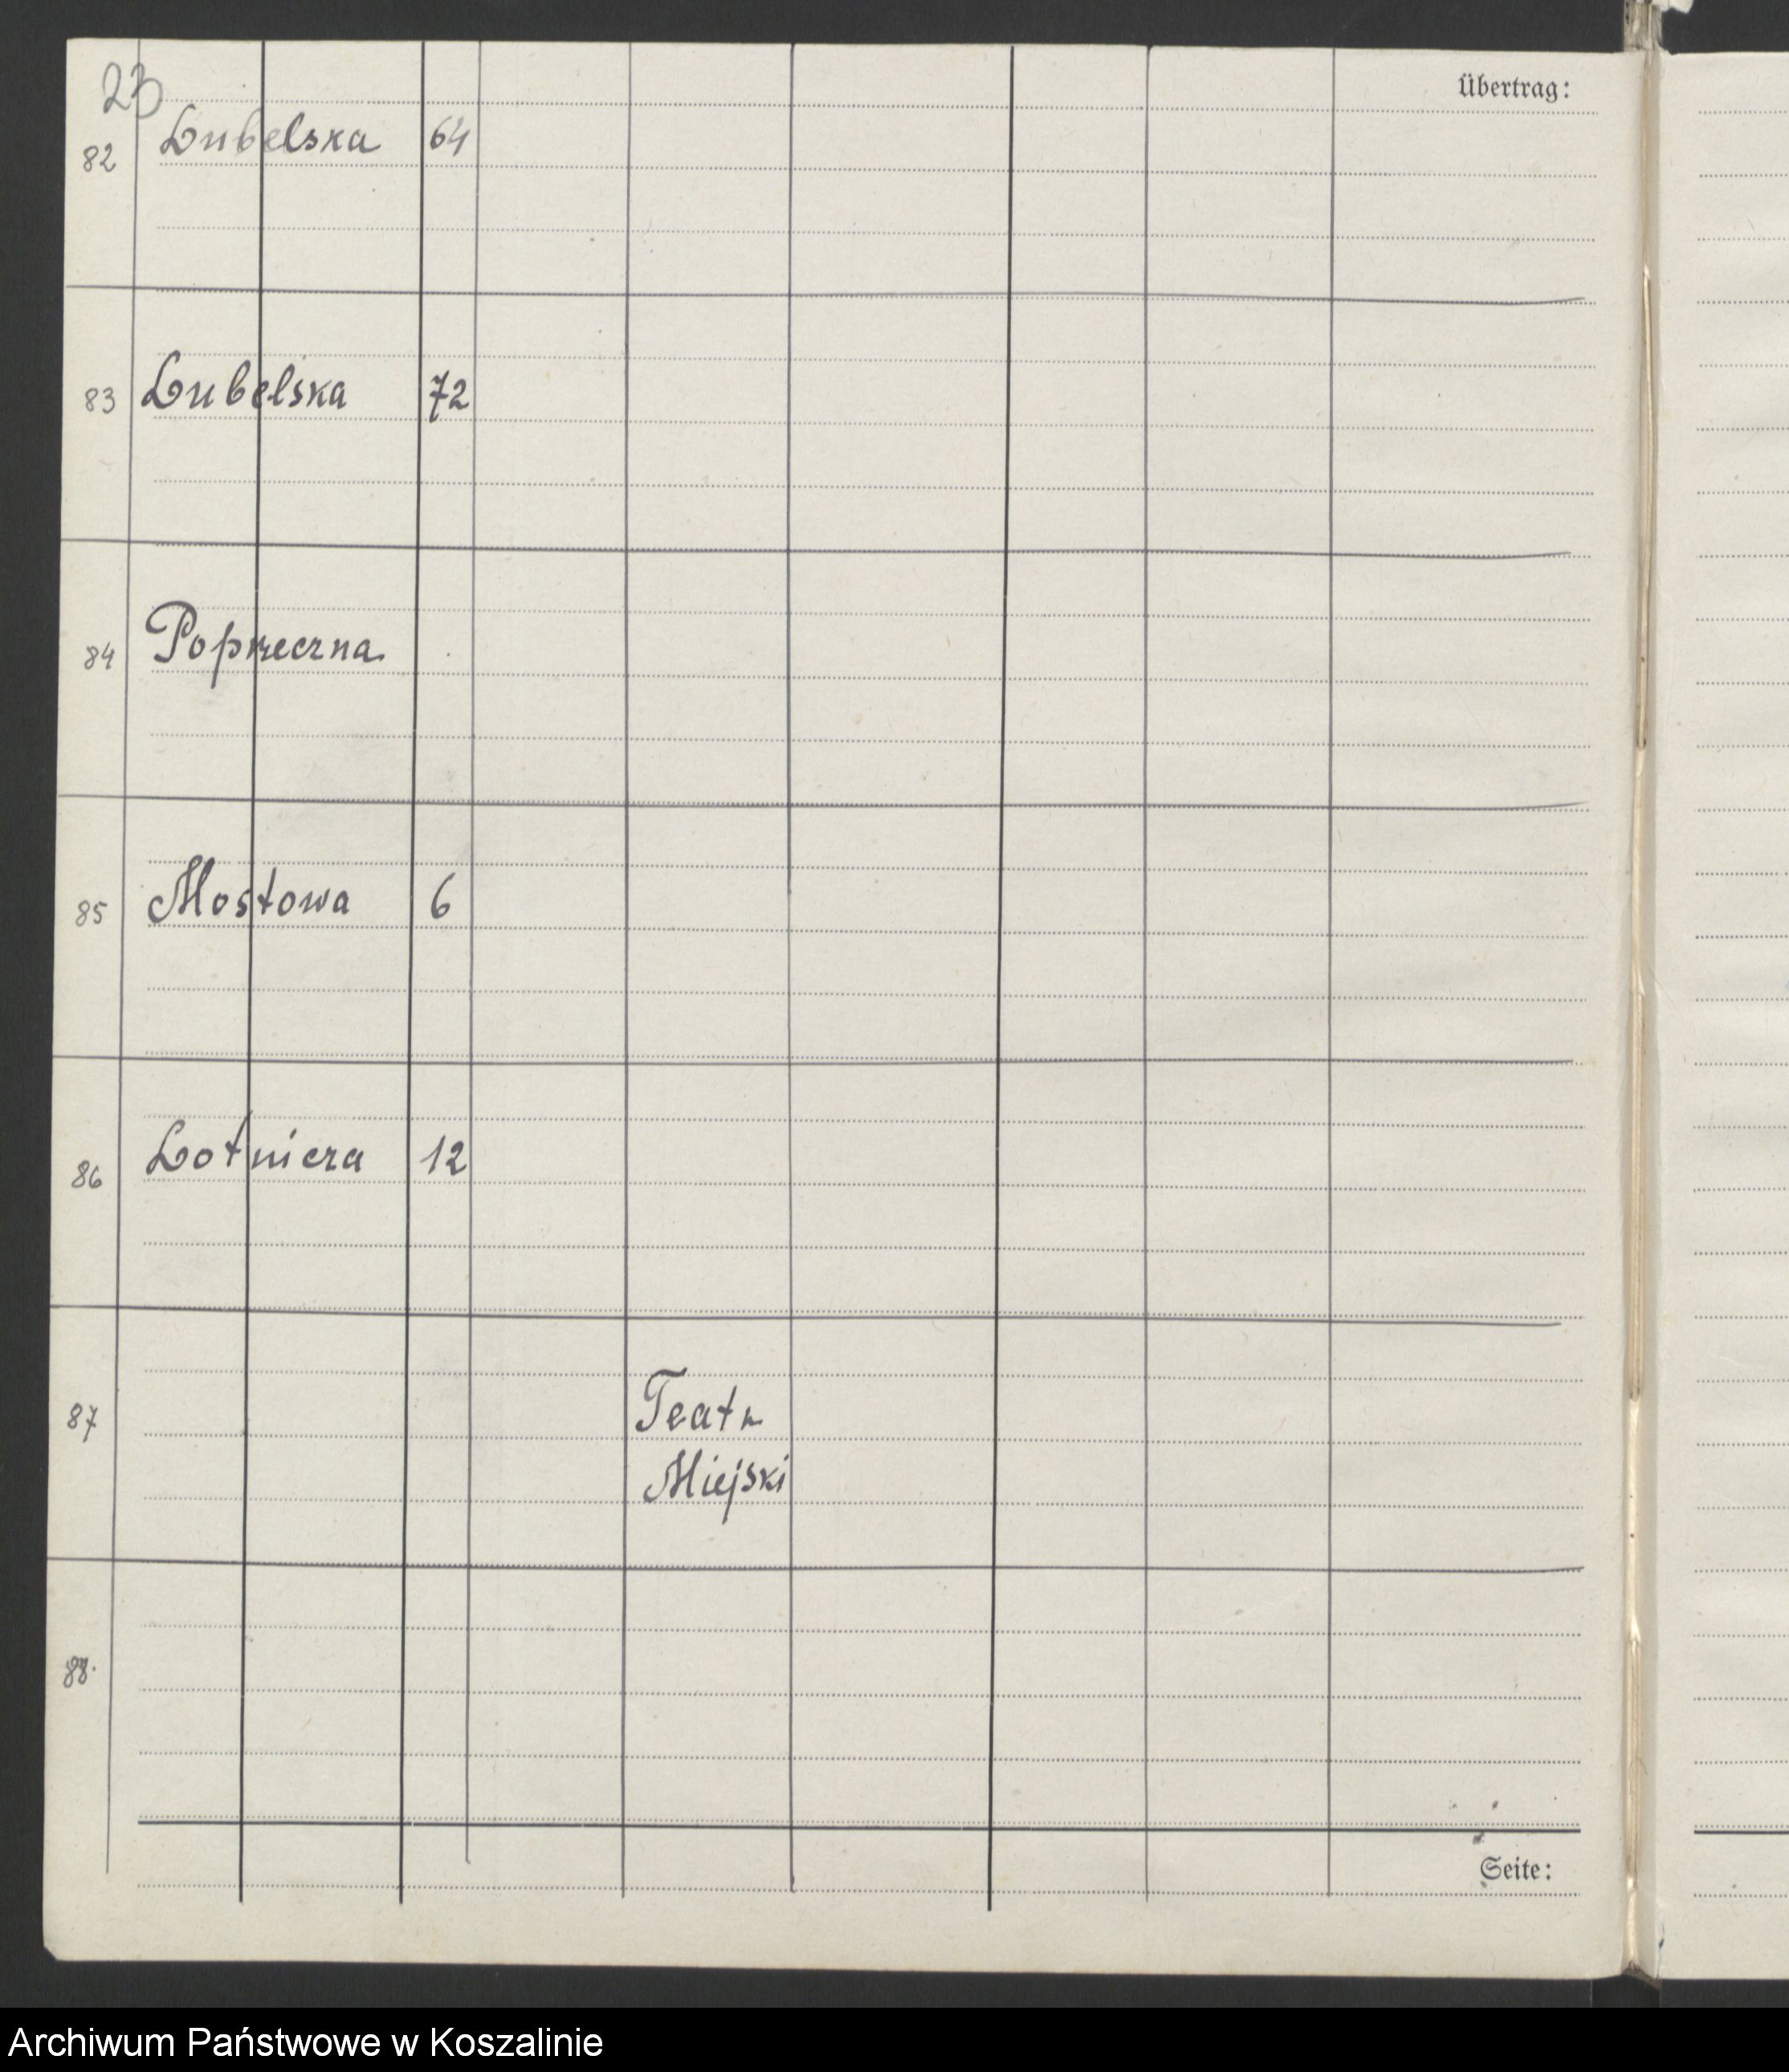 23
Übertrag:
82 Lubelska 64
83 Lubelska 72
84 Poprzeczna
85 Mostowa 6
86 Lotnicza 12
87 Teatr
Miejski
88.
Seite:
Archiwum Państwowe w Koszalinie